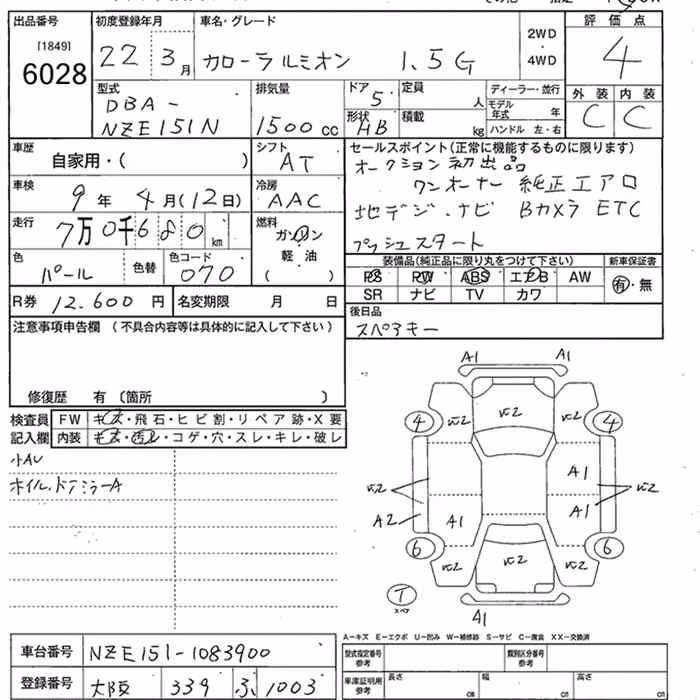 出品番号 初度登録年月 車名・グレード 評価点
[1849] 6028 22 3月 カローラルミオン 1.5G 2WD・4WD 4
外装 内装
C C
型式 排気量 ドア 定員 ディーラー・並行
DBA- 5 人 モデル年式 年
NZE151N 1500cc 形状 HB 積載 kg ハンドル 左・右
車歴 シフト セールスポイント(正常に機能するものに限ります)
自家用・( ) AT オークション初出品
車検 冷房 ワンオーナー 純正エアロ
9年4月(12日) AAC 地デジ.ナビ Bカメラ ETC
走行 燃料 プッシュスタート
7万0千680km ガソリン
軽油
( )
色 色替 色コード
パール 070
装備品(純正品に限り丸をつけて下さい) 新車保証書
PS PW ABS エアB AW 有・無
SR ナビ TV カワ
R券 12.600円 名変期限 月 日
後日品
スペアキー
注意事項申告欄(不具合内容等は具体的に記入して下さい)
修復歴 有(箇所 )
検査員記入欄 FW キズ・飛石・ヒビ割・リペア跡・X要
内装 キズ・汚レ・コゲ・穴・スレ・キレ・破レ
小AU
ホイル.ドアミラーA
A1 A1
4 4
A1
A2 A1 A1
6 6
T
スペア
A1
A-キズ E-エクボ U-凹み W-補修跡 S-サビ C-腐食 XX-交換済
車台番号 NZE151-1083900
型式指定番号 参考 類別区分番号 参考
登録番号 大阪 339 ふ 1003
車庫証明用 参考 長さ 幅 高さ